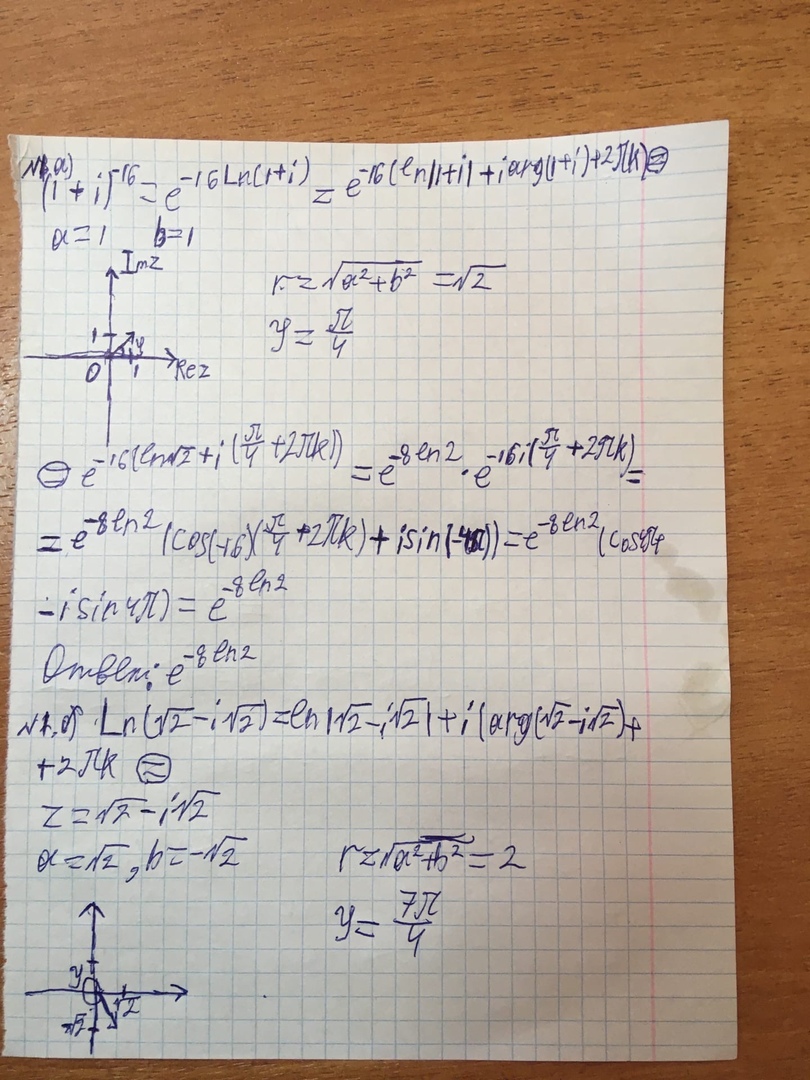 №1.а)
(1+i)^-16 = e^-16Ln(1+i) = e^-16(ln|1+i|+iarg(1+i)+2πk) ⊜
a=1 b=1
Imz
r=√a²+b² =√2
φ=π/4
1 φ
0 1 Rez
⊜ e^-16(ln√2+i(π/4+2πk)) = e^-8ln2 · e^-16i(π/4+2πk) =
= e^-8ln2 (cos(-16)(π/4+2πk)+isin(-4π)) = e^-8ln2 (cos4π
-isin4π) = e^-8ln2
Ответ: e^-8ln2
№1.б) Ln(√2-i√2)=ln|√2-i√2|+i(arg(√2-i√2)+
+2πk ⊜
z=√2-i√2
a=√2, b=-√2 r=√a²+b² =2
φ=7π/4
φ
√2
-√2